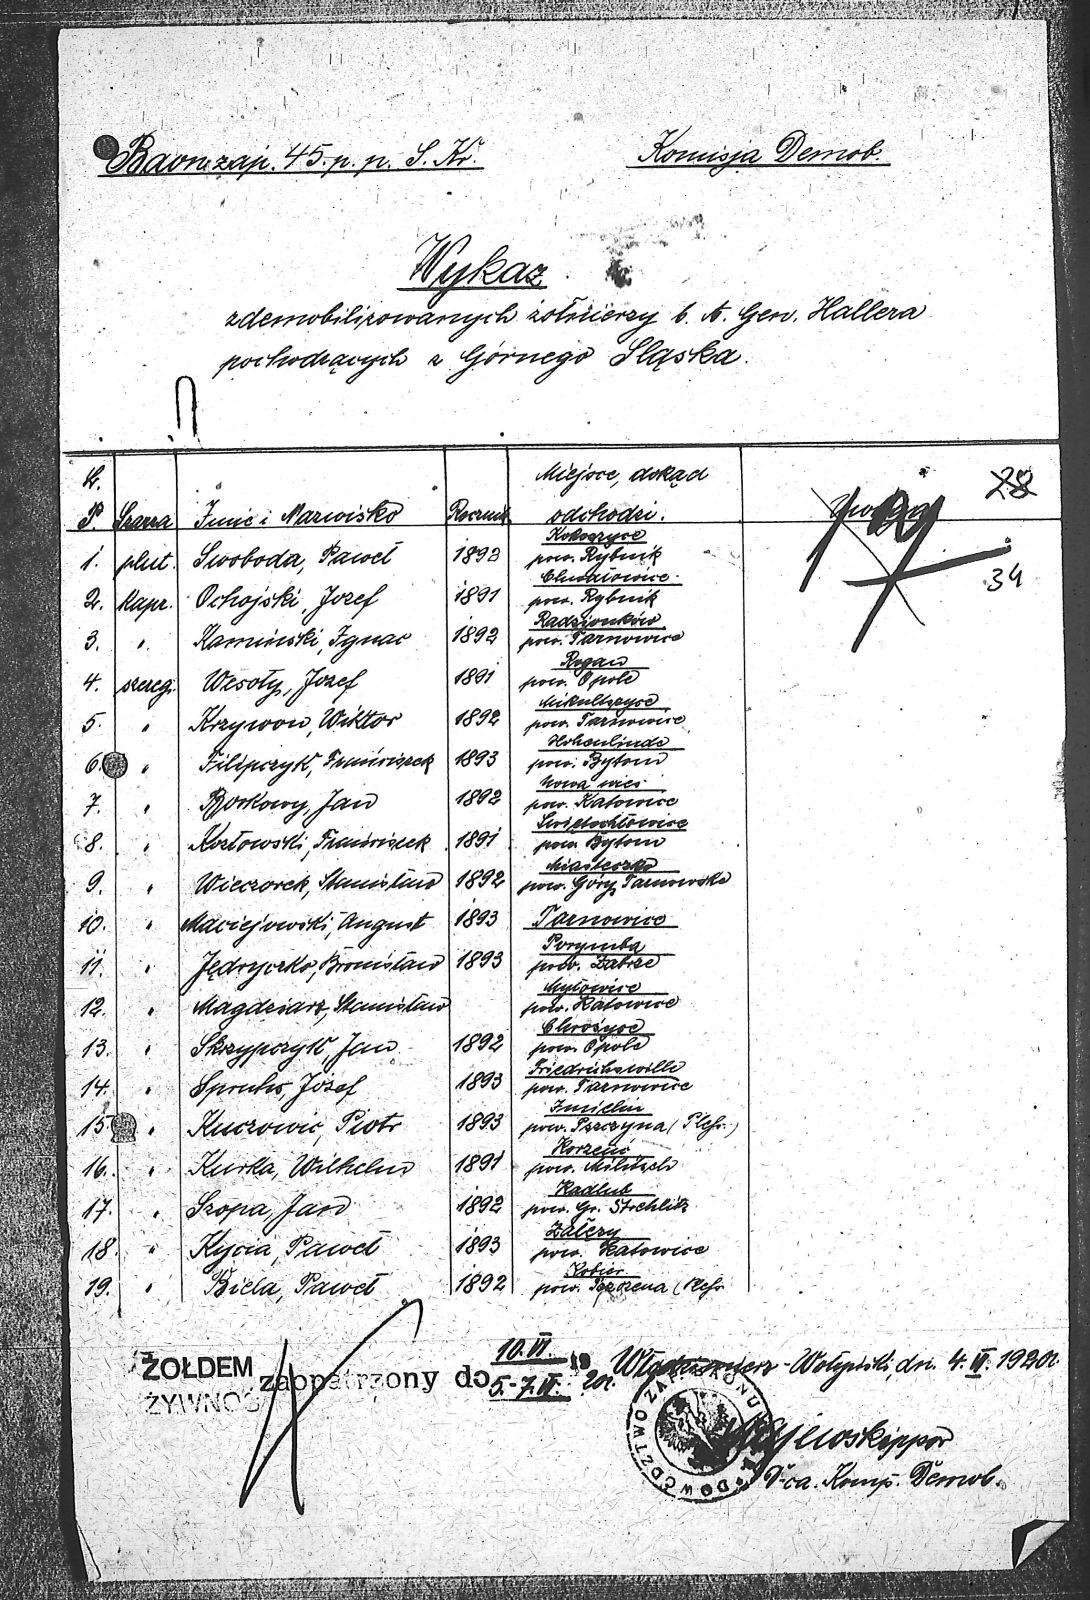 Baon zap. 45. p. p. S. Kr. Komisja Demob.
Wykaz
zdemobilizowanych żołnierzy b. A. Gen. Hallera
pochodzących z Górnego Śląska.
L. P. Szarża Imię i Nazwisko Rocznik Miejsce, dokąd odchodzi.
28
34
1. plut. Swoboda, Paweł 1892 Kokoszyce pow. Rybnik
2. kapr. Ochojski, Jozef 1891 Chwałowice pow. Rybnik
3. " Kamiński, Ignac 1892 Radzionków pow. Tarnowice
4. szereg. Wesoły, Jozef 1891 Rogau pow. Opole
5. " Krzywon, Wiktor 1892 Mikulszyce pow. Tarnowice
6. " Filipczyk, Franciszek 1893 Hohenlinde pow. Bytom
7. " Borkowy, Jan 1892 Nowa wieś pow. Katowice
8. " Kozłowski, Franciszek 1891 Świętochłowice pow. Bytom
9. " Wieczorek, Stanisław 1892 Miasteczko pow. Góry Tarnowskie
10. " Maciejowski, August 1893 Tarnowice
11. " Jędryczko, Bronisław 1893 Porymba pow. Zabrze
12. " Magdziarz, Stanisław Mysłowice pow. Katowice
13. " Skrzypczyk, Jan 1892 Chrośyce pow. Opole
14. " Spruhs, Józef 1893 Friedrichswille pow. Tarnowice
15. " Kuczowic, Piotr 1893 Imielin pow. Pszczyna (Pleß.)
16. " Kurka, Wilhelm 1891 Korzeńć pow. Militsch
17. " Szopa, Jan 1892 Kadlub pow. Gr. Strehlitz
18. " Kycia, Paweł 1893 Załęzy pow. Katowice
19. " Biela, Paweł 1892 Kobier pow. Pszczena (Pleß.
10. VI.
ŻOŁDEM zaopatrzony do 19 20r. Włodzimierz-Wołyński, dn. 4. VI. 1920r.
ŻYWNOŚ 5.-7. VI.
DOWÓDZTWO
ppor
D-ca. Komp. Demob.